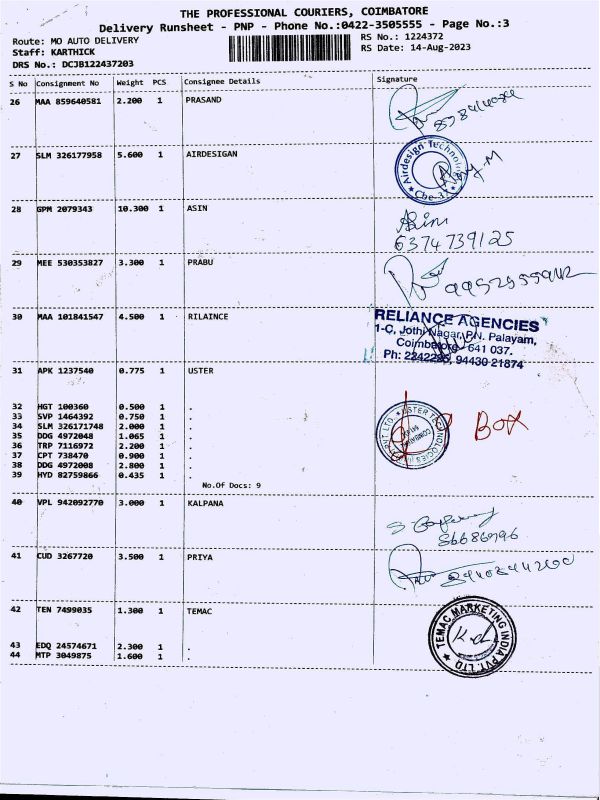 THE PROFESSIONAL COURIERS, COIMBATORE
Delivery Runsheet - PNP - Phone No.:0422-3505555 - Page No.:3
Route: MO AUTO DELIVERY
RS No.: 1224372
Staff: KARTHICK
RS Date: 14-Aug-2023
DRS No.: DCJB122437203
S No Consignment No Weight PCS Consignee Details Signature
26 MAA 859640581 2.200 1 PRASAND
27 SLM 326177958 5.600 1 AIRDESIGAN
Airdesign Technolog
Cbe-3
28 GPM 2079343 10.300 1 ASIN
Asin
6374739125
29 MEE 530353827 3.300 1 PRABU
30 MAA 101841547 4.500 1 RILAINCE
RELIANCE AGENCIES
1-C, Jothi Nagar, P.N. Palayam,
Coimbatore - 641 037.
Ph: 2242295, 94430 21874
31 APK 1237540 0.775 1 USTER
32 HGT 100360 0.500 1 .
33 SVP 1464392 0.750 1 .
34 SLM 326171748 2.000 1 .
35 DDG 4972048 1.065 1 .
36 TRP 7116972 2.200 1 .
37 CPT 738470 0.900 1 .
38 DDG 4972008 2.800 1 .
39 HYD 82759866 0.435 1 .
USTER TECHNOLOGIES
PVT LTD.
BOX
No.Of Docs: 9
40 VPL 942092770 3.000 1 KALPANA
41 CUD 3267720 3.500 1 PRIYA
42 TEN 7499035 1.300 1 TEMAC
43 EDQ 24574671 2.300 1 .
44 MTP 3049875 1.600 1 .
TEMAC MARKETING INDIA PVT. LTD